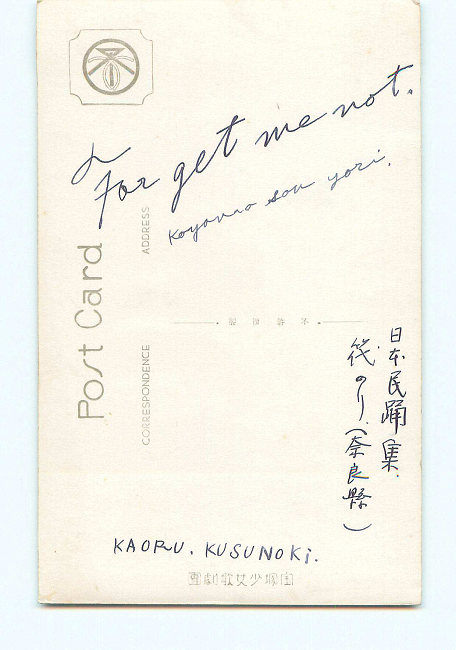 For get me not.
Koyono son yori.
Post Card
ADDRESS
CORRESPONDENCE
日本民踊集.
筏のり.(奈良縣)
KAORU. KUSUNOKi.
寶塚少女歌劇團